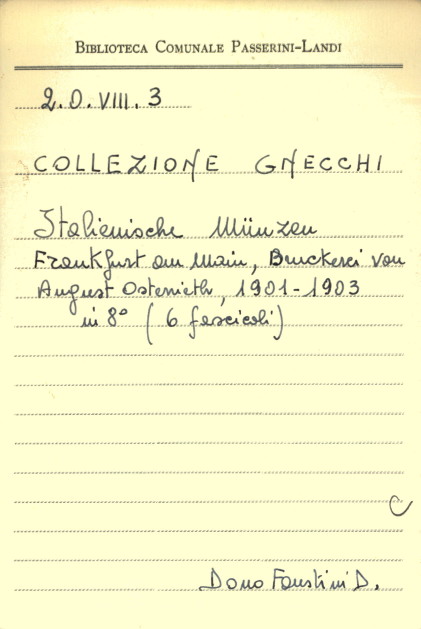 BIBLIOTECA COMUNALE PASSERINI-LANDI
2.O.VIII.3
COLLEZIONE GNECCHI
Italienische Münzen
Frankfurt am Main, Druckerei von
August Osterrieth, 1901-1903
in 8° (6 fascicoli)
C
Dono Faustini D.